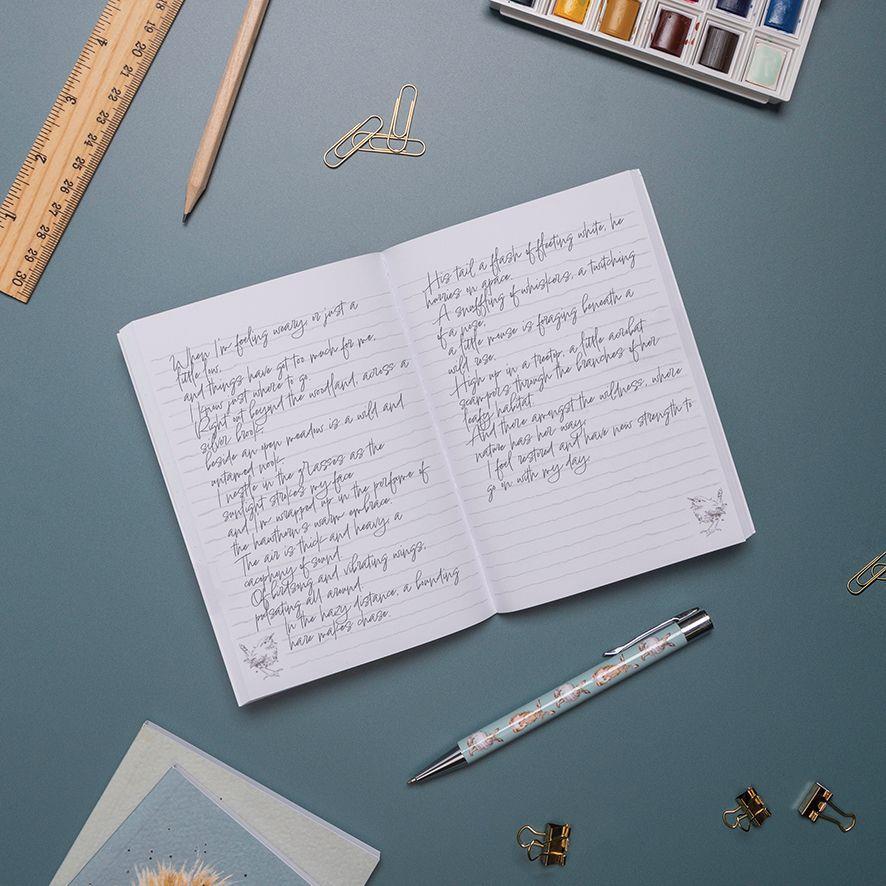 When I'm feeling weary, or just a
little low,
and things have got too much for me,
I know just where to go.
Right out beyond the woodland, across a
silver brook
beside an open meadow is a wild and
untamed nook
I nestle in the grasses as the
sunlight strokes my face
and I'm wrapped up in the perfume of
the hawthorn's warm embrace.
The air is thick and heavy, a
cacophony of sound
Of birdsong and vibrating wings,
pulsating all around.
In the hazy distance, a bounding
hare makes chase.
His tail a flash of fleeting white, he
hurries on apace.
A snuffling of whiskers, a twitching
of a nose,
a little mouse is foraging beneath a
wild rose.
High up in a treetop, a little acrobat
scampers through the branches of her
leafy habitat.
And there amongst the wildness, where
nature has her way,
I feel restored and have new strength to
go on with my day.
1
2
3
4
18
19
20
21
22
23
24
25
26
27
28
29
30